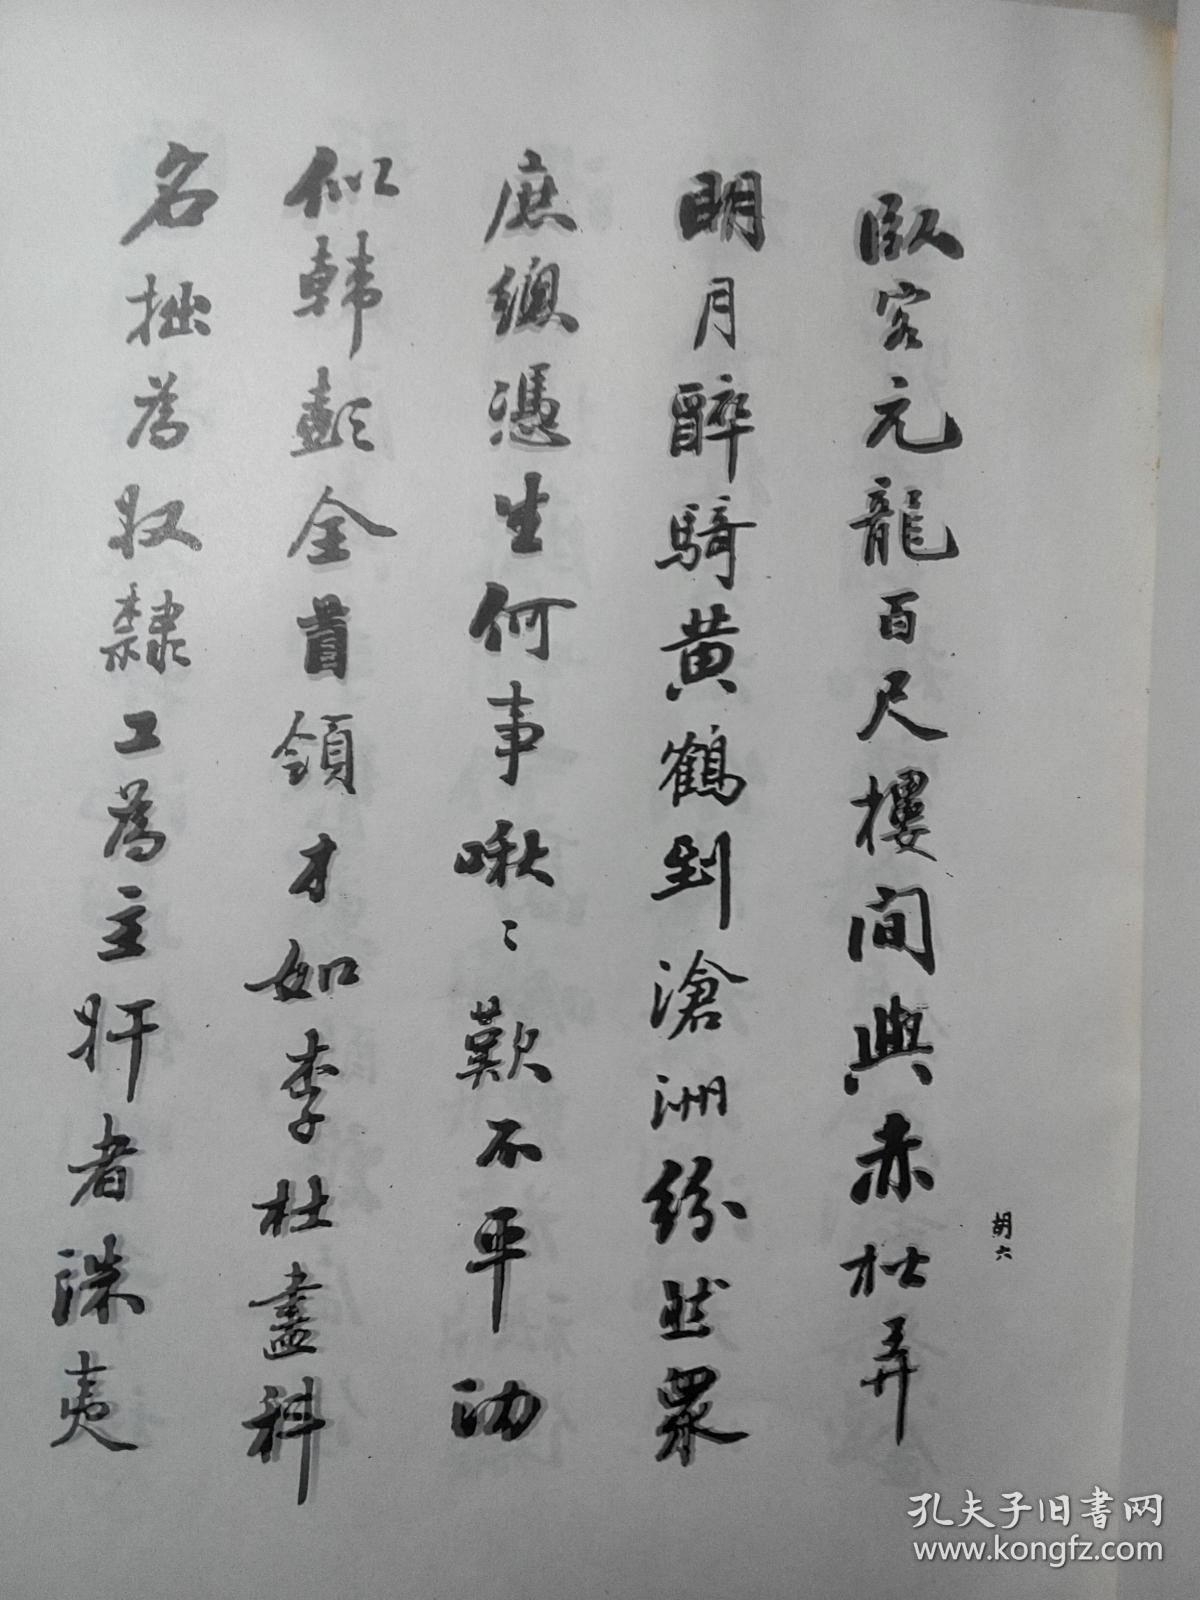 臥客元龍百尺樓間與赤松弄
明月醉騎黃鶴到滄洲紛然眾
庶總憑生何事啾〻歎不平功
似韓彭全首領才如李杜盡科
名拙為奴隸工為主奸者誅夷
胡六
孔夫子旧书网
www.kongfz.com